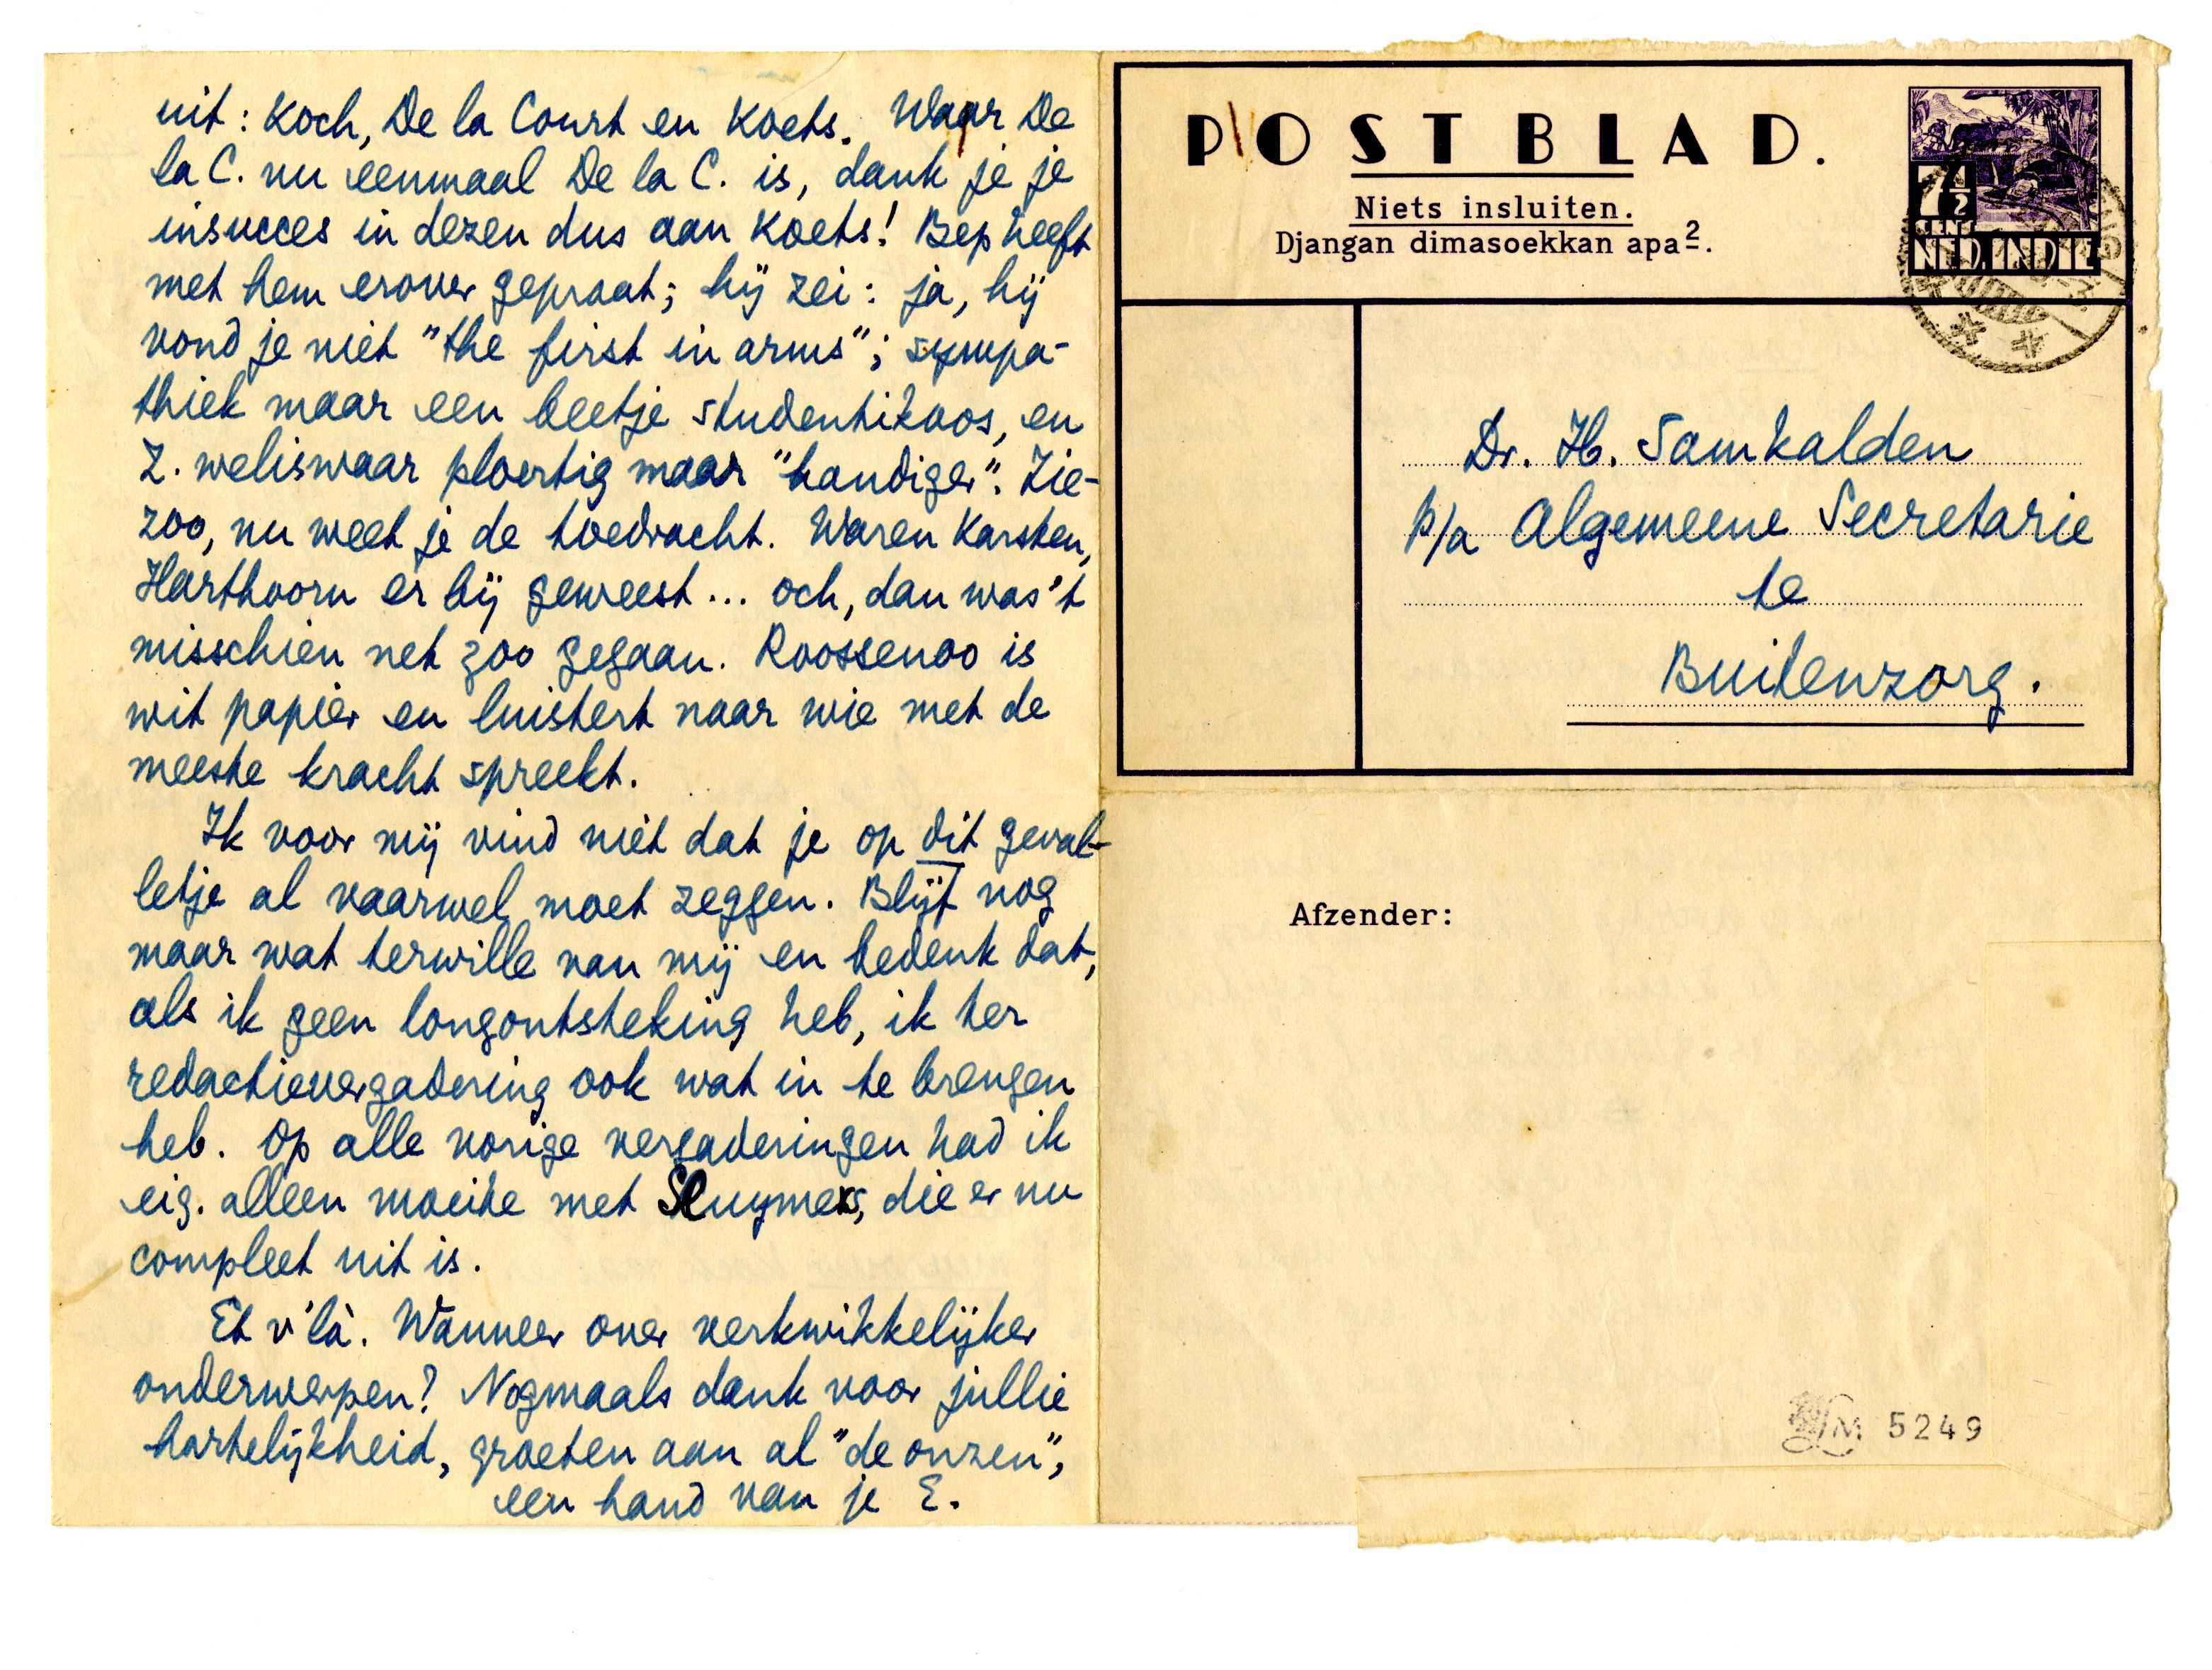 uit: Koch, De la Court en Koets. Waar De
la C. nu eenmaal De la C. is, dank je je
insucces in dezen dus aan Koets! Bep heeft
met hem erover gepraat; hij zei: ja, hij
vond je niet "the first in arms"; sympa-
thiek maar een beetje studentikoos, en
Z. weliswaar ploertig maar "handiger". Zie-
zoo, nu weet je de toedracht. Waren Karsten,
Harthoorn er bij geweest... och, dan was 't
misschien net zoo gegaan. Roossenoo is
wit papier en luistert naar wie met de
meeste kracht spreekt.
Ik voor mij vind niet dat je op dit geval-
letje al vaarwel moet zeggen. Blijf nog
maar wat terwille van mij en bedenk dat,
als ik geen longontsteking heb, ik ter
redactievergadering ook wat in te brengen
heb. Op alle vorige vergaderingen had ik
eig. alleen moeite met Sluymers, die er nu
compleet uit is.
Et v'là. Wanneer over verkwikkelijker
onderwerpen? Nogmaals dank voor jullie
hartelijkheid, groeten aan al "de onzen",
een hand van je E.
POSTBLAD.
Niets insluiten.
Djangan dimasoekkan apa2.
7½
CENT
NED. INDIE
Dr. H. Samkalden
p/a Algemeene Secretarie
te
Buitenzorg.
Afzender:
LM 5249